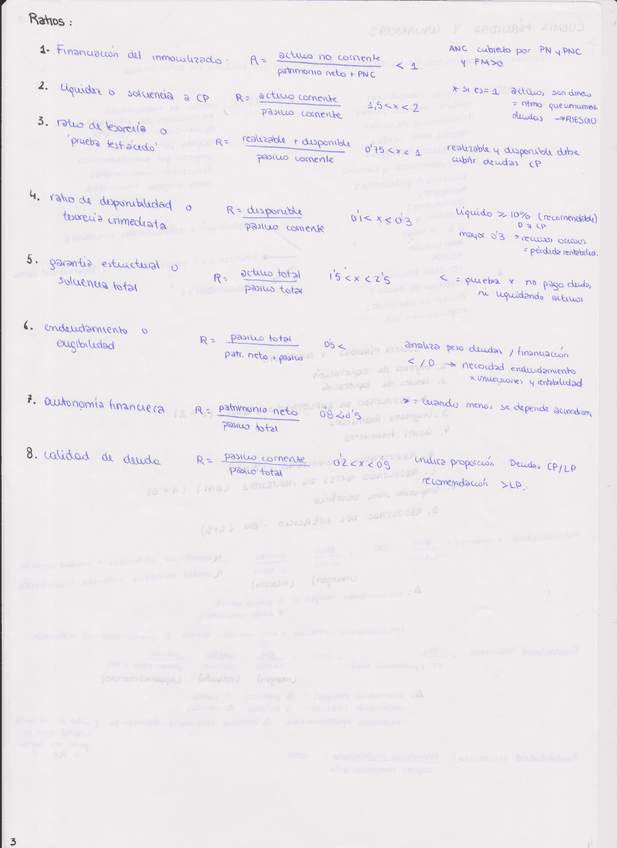 Ratios:
1- Financiación del inmovilizado: R = activo no corriente / patrimonio neto + PNC < 1 ANC cubierto por PN y PNC
y FM>0
2. Liquidez o solvencia a CP R = activo corriente / pasivo corriente 1,5 < x < 2 * si es = 1 activos son dinero
= ritmo que
deudas → RIESGO
3. ratio de tesorería o R = realizable + disponible / pasivo corriente 0'75 < x < 1 realizable y disponible debe
'prueba test ácido' cubrir deudas CP
4. ratio de disponibilidad o R = disponible / pasivo corriente 0'1 < x < 0'3 Líquido ≥ 10% (recomendable)
tesorería inmediata D a CP
mayor 0'3 → recursos ociosos
= pérdida rentabilidad.
5. garantía estructural o R = activo total / pasivo total 1'5 < x < 2'5 < = quiebra x no pago deudas,
solvencia total ni liquidando activos
6. endeudamiento o R = pasivo total / patr. neto + pasivo 05 < analiza peso deudas / financiación
exigibilidad < / 0 → necesidad endeudamiento
x inversiones y rentabilidad
7. autonomía financiera R = patrimonio neto / pasivo total 0'8 < 0'5 > = cuando menos, se depende
8. calidad de deuda R = pasivo corriente / pasivo total 0'2 < x < 05 indica proporción Deudas CP/LP
recomendación >LP.
3